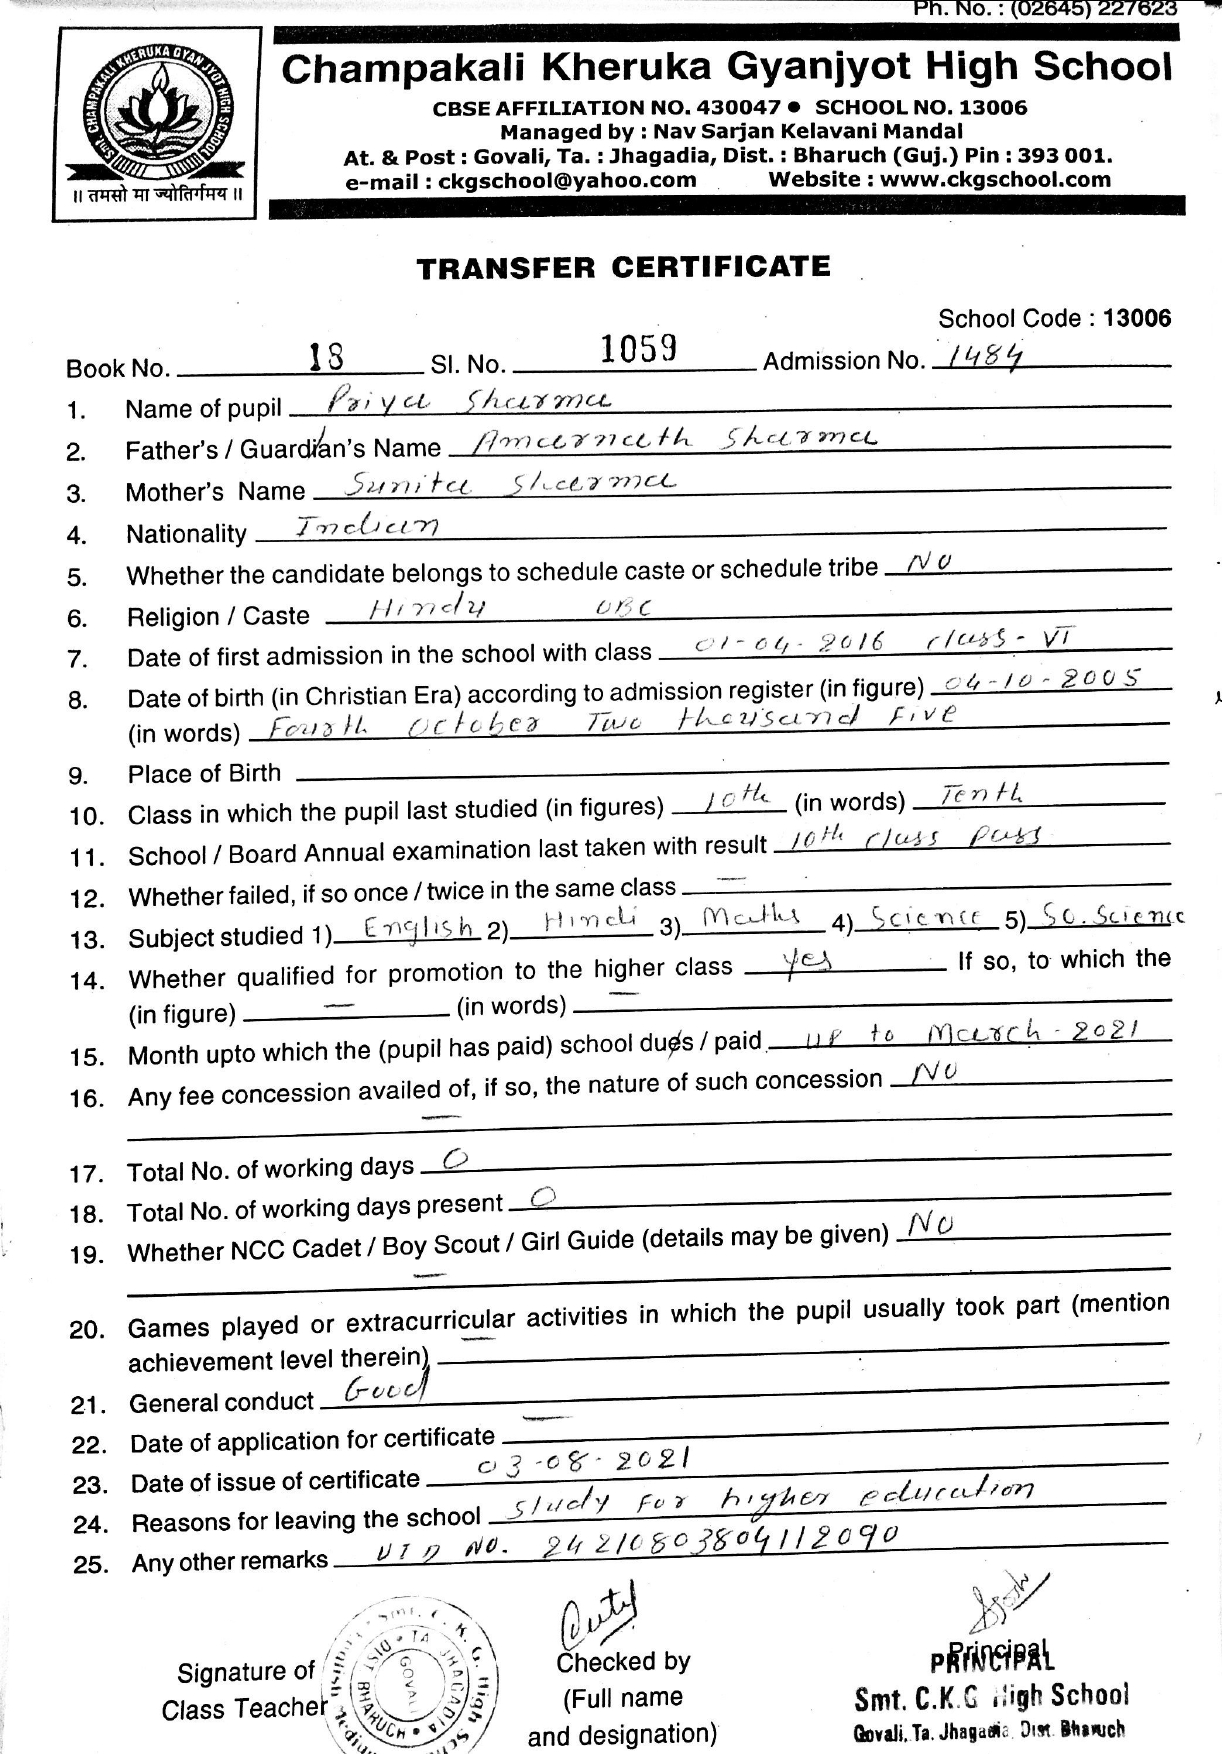 Ph. No. : (02645) 227623
SMT. CHAMPAKALI KHERUKA GYANJYOT HIGH SCHOOL
॥ तमसो मा ज्योतिर्गमय ॥
Champakali Kheruka Gyanjyot High School
CBSE AFFILIATION NO. 430047 ● SCHOOL NO. 13006
Managed by : Nav Sarjan Kelavani Mandal
At. & Post : Govali, Ta. : Jhagadia, Dist. : Bharuch (Guj.) Pin : 393 001.
e-mail : ckgschool@yahoo.com Website : www.ckgschool.com
TRANSFER CERTIFICATE
School Code : 13006
Book No. 18 Sl. No. 1059 Admission No. 1484
1. Name of pupil Priya Sharma
2. Father's / Guardian's Name Amarnath Sharma
3. Mother's Name Sunita Sharma
4. Nationality Indian
5. Whether the candidate belongs to schedule caste or schedule tribe No
6. Religion / Caste Hindu OBC
7. Date of first admission in the school with class 01-04-2016 class-VI
8. Date of birth (in Christian Era) according to admission register (in figure) 04-10-2005
(in words) Fourth October Two thousand Five
9. Place of Birth
10. Class in which the pupil last studied (in figures) 10th (in words) Tenth
11. School / Board Annual examination last taken with result 10th class pass
12. Whether failed, if so once / twice in the same class —
13. Subject studied 1) English 2) Hindi 3) Maths 4) Science 5) So.Science
14. Whether qualified for promotion to the higher class yes If so, to which the
(in figure) — (in words) —
15. Month upto which the (pupil has paid) school dues / paid up to March-2021
16. Any fee concession availed of, if so, the nature of such concession No
—
17. Total No. of working days 0
18. Total No. of working days present 0
19. Whether NCC Cadet / Boy Scout / Girl Guide (details may be given) No
—
20. Games played or extracurricular activities in which the pupil usually took part (mention
achievement level therein) —
21. General conduct Good
22. Date of application for certificate —
23. Date of issue of certificate 03-08-2021
24. Reasons for leaving the school study for higher education
25. Any other remarks UID NO. 24210803804112090
Signature of
Class Teacher
Smt. C. K. G. High
DIST BHARUCH • TA JHAGADIA •
GOVALI
Checked by
(Full name
and designation)
Principal
PRINCIPAL
Smt. C.K.G High School
Govali, Ta. Jhagadia, Dist. Bharuch